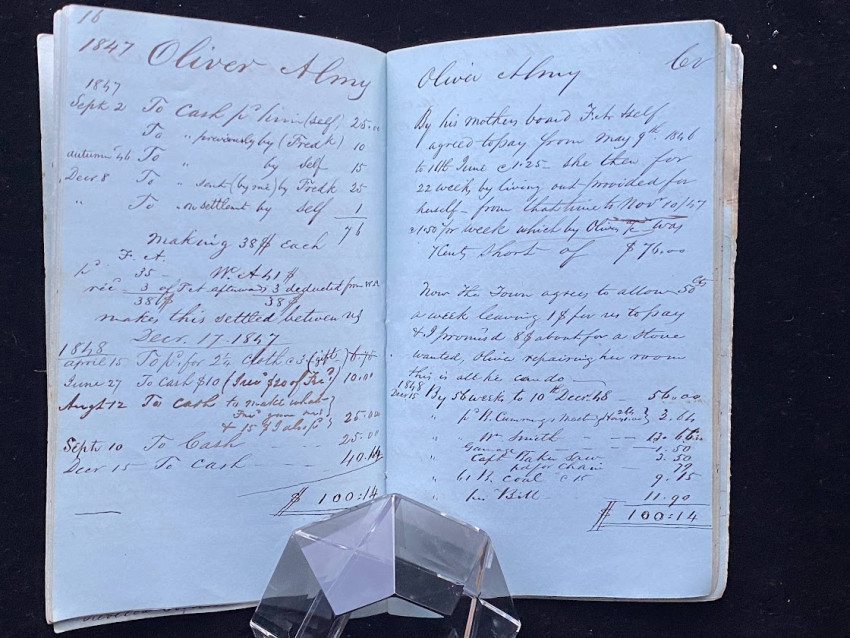 16
1847 Oliver Almy
1847
Sept 2 To Cash pd him (self) 25.00
To " previously by (Fredk) 10
autumn 46 To " by self 15
Decr 8 To " sent (by me) by Fredk 25
" To " on settlemt by self 1
76
Making 38$ each
F. A.
pd 35 - W. A 41 $
recd 3 of F&t afterwards 3 deducted from W.A
38$ 38$
makes this settled between us
Decr. 17. 1847
1848
april 15 To pd. for 2¼ cloth c 3 (gift)
June 27 To Cash $10 10.00
Augt 12 To Cash to make what
& 15 $ I also pd 25.00
Septr 10 To Cash - - - 25.00
Decr 15 To Cash - - - 40.14
$ 100:14
Oliver Almy Cr
By his mothers board Self
agreed to pay from May 9th 1846
to 11th June c 1.25 - she then for
22 week by living out provided for
herself - from that time to Novr 10/47
a 1.50 pr week which by Oliver was
short of $76.00
Now the Town agrees to allow .50 Cts
a week leaving 1$ for us to pay
& I promised 8$ about for a Stove
wanted, Oliver repairing her room
this is all he can do -
1848
Decr 15 By 56 weeks to 10th Decr 48 - 56.00
" pd W. Cummings 2.64
" Wm Smith - - 13.66
1.50
" Capt 3.50
" pd for Chain - 79
" 61 B. Coal c 15 9.15
" his Bill - 11.90
$ 100:14